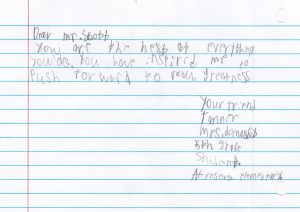 Dear mr. Scott
You are the best at everything
you do. You have inspired me to
push forword to reach greatness
Your friend
Tanner
Mrs.
5th grade
Student
At elementary